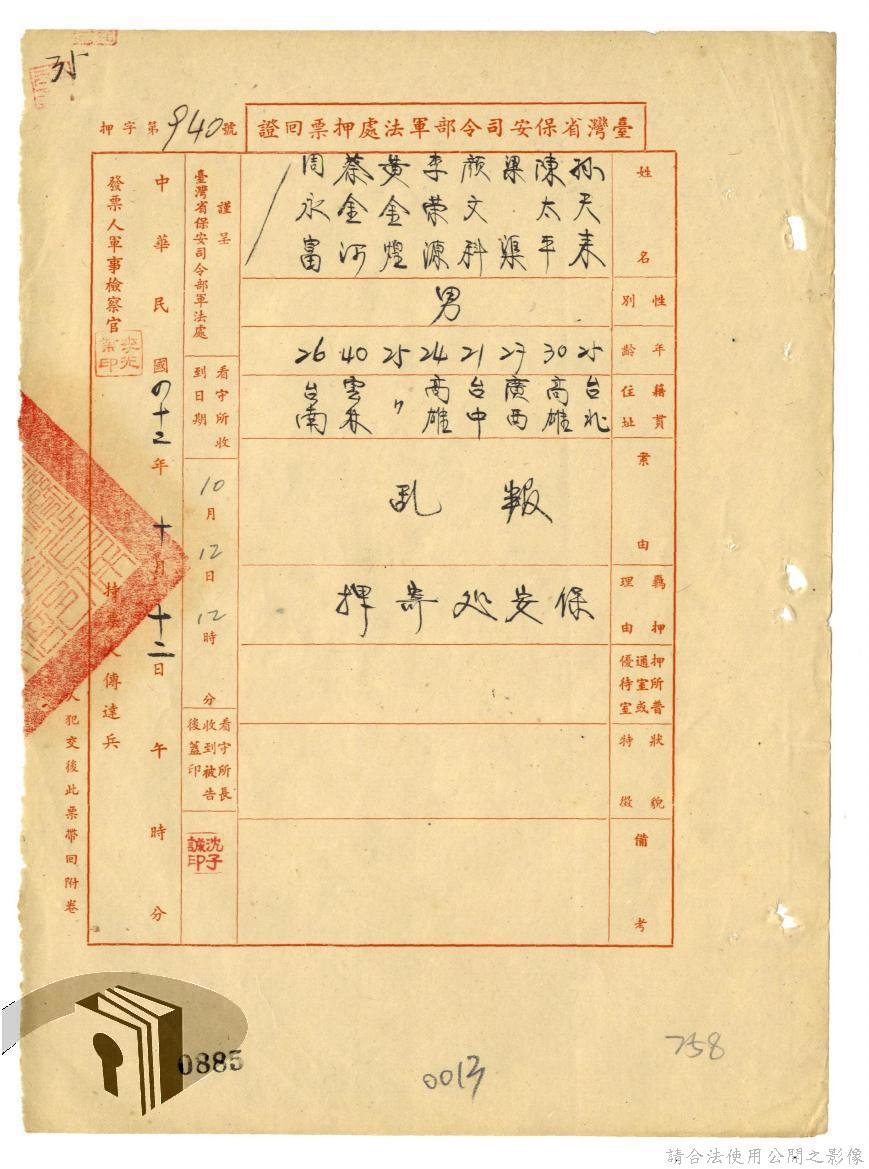 35
臺灣省保安司令部軍法處押票回證
押字第940號
姓名
孫天来
陳太平
梁渠
顏文科
李榮源
黃金煌
蔡金河
周永富
性別
男
年齡
25 30 27 21 24 25 40 26
籍貫住址
台北
高雄
廣西
台中
高雄
〃
雲林
台南
案由
叛乱
羈押理由
保安处寄押
押所普通室或優待室
特徵狀貌
備考
謹呈
臺灣省保安司令部軍法處
看守所收到日期
10月12日12時 分
看守所長收到被告後蓋印
沈子誠印
中華民國四十二年十月十二日 午 時 分
發票人軍事檢察官
傳達兵
人犯交後此票帶回附卷
0885
0013
758
請合法使用公開之影像